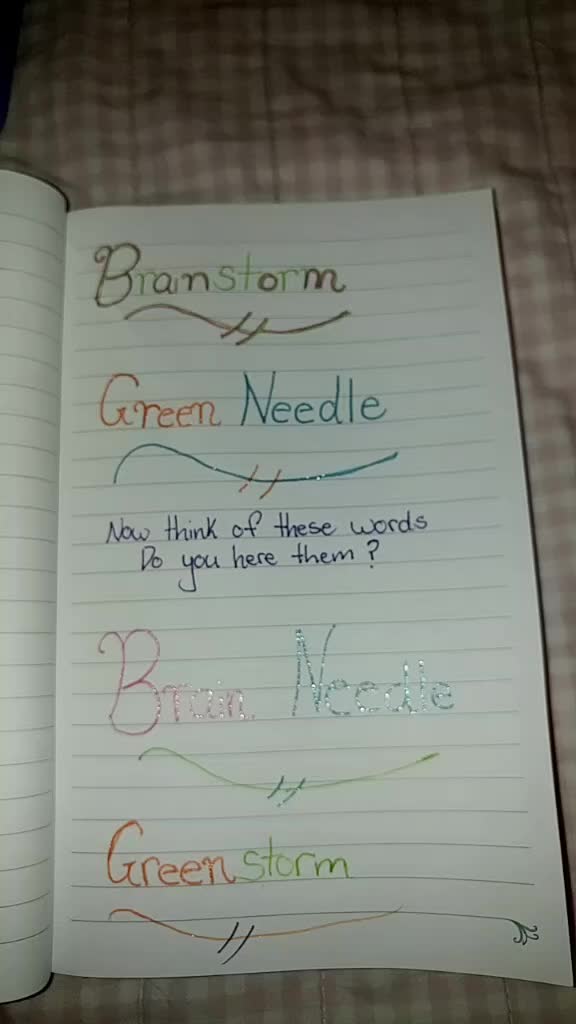 Branstorm
Green Needle
Now think of these words
Do you here them?
Brain Needle
Greenstorm